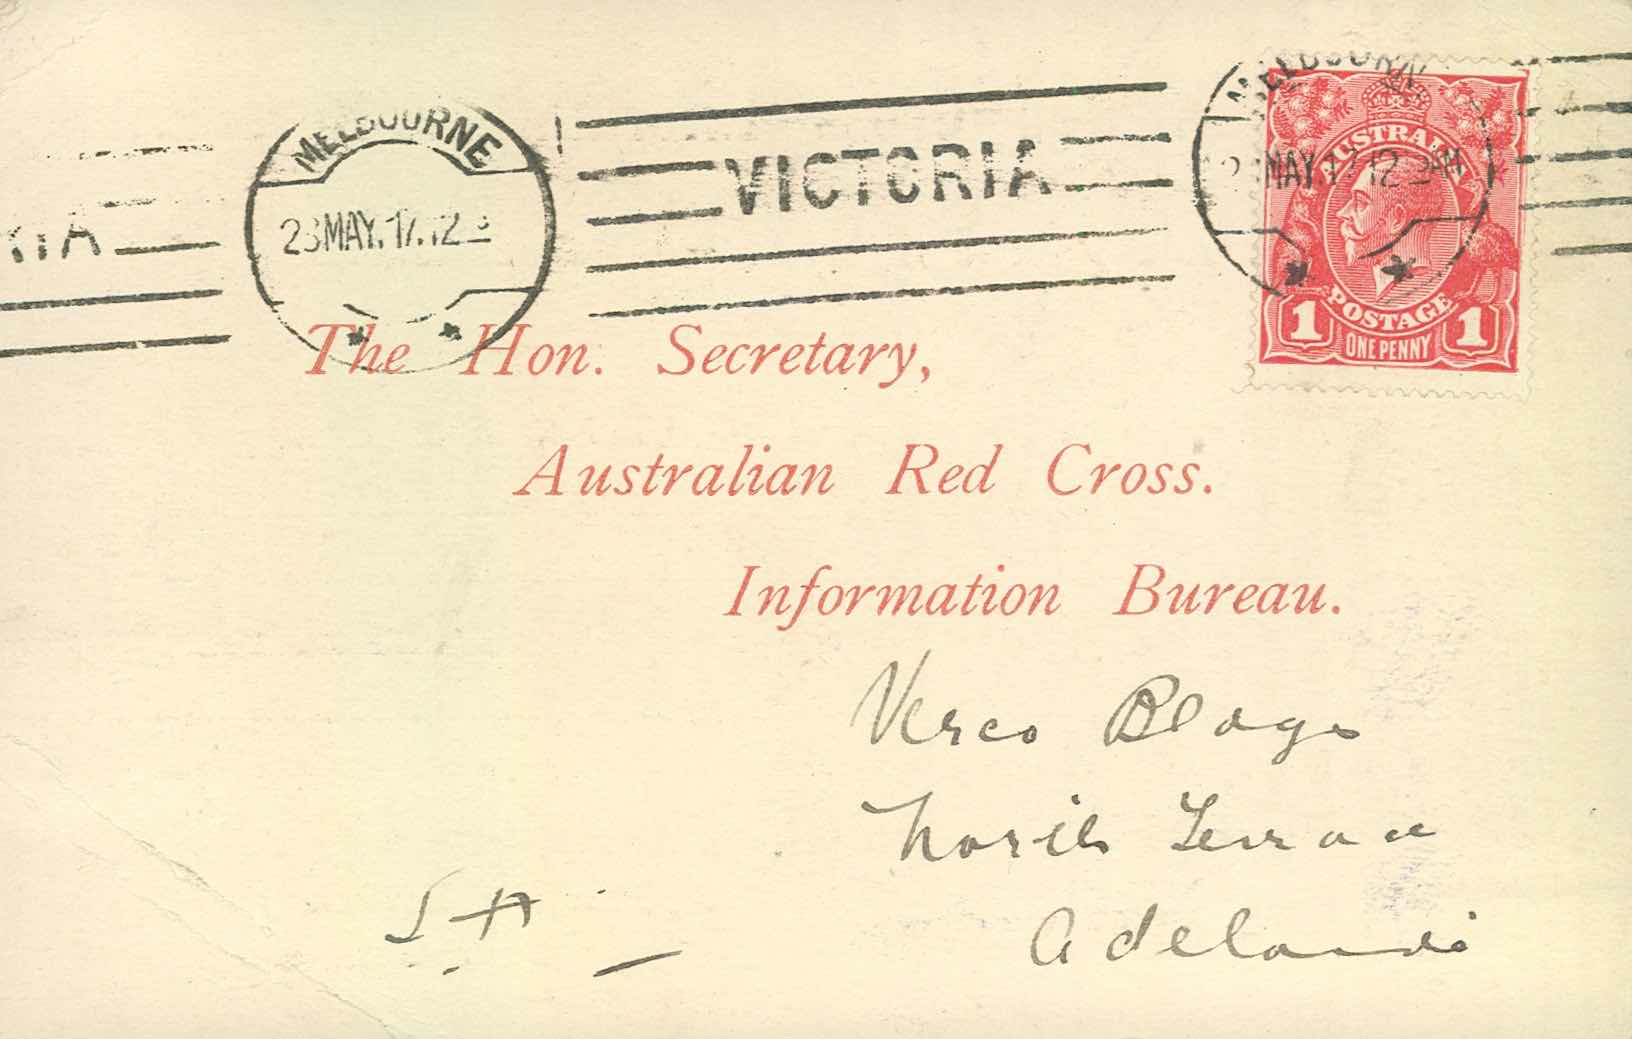 MELBOURNE
23MAY.17.12
VICTORIA
MELBOURNE
MAY.17 12 AM
AUSTRALIA
POSTAGE
1 ONE PENNY 1
The Hon. Secretary,
Australian Red Cross.
Information Bureau.
Verco Bldgs
North Terrace
Adelaide
S.A.